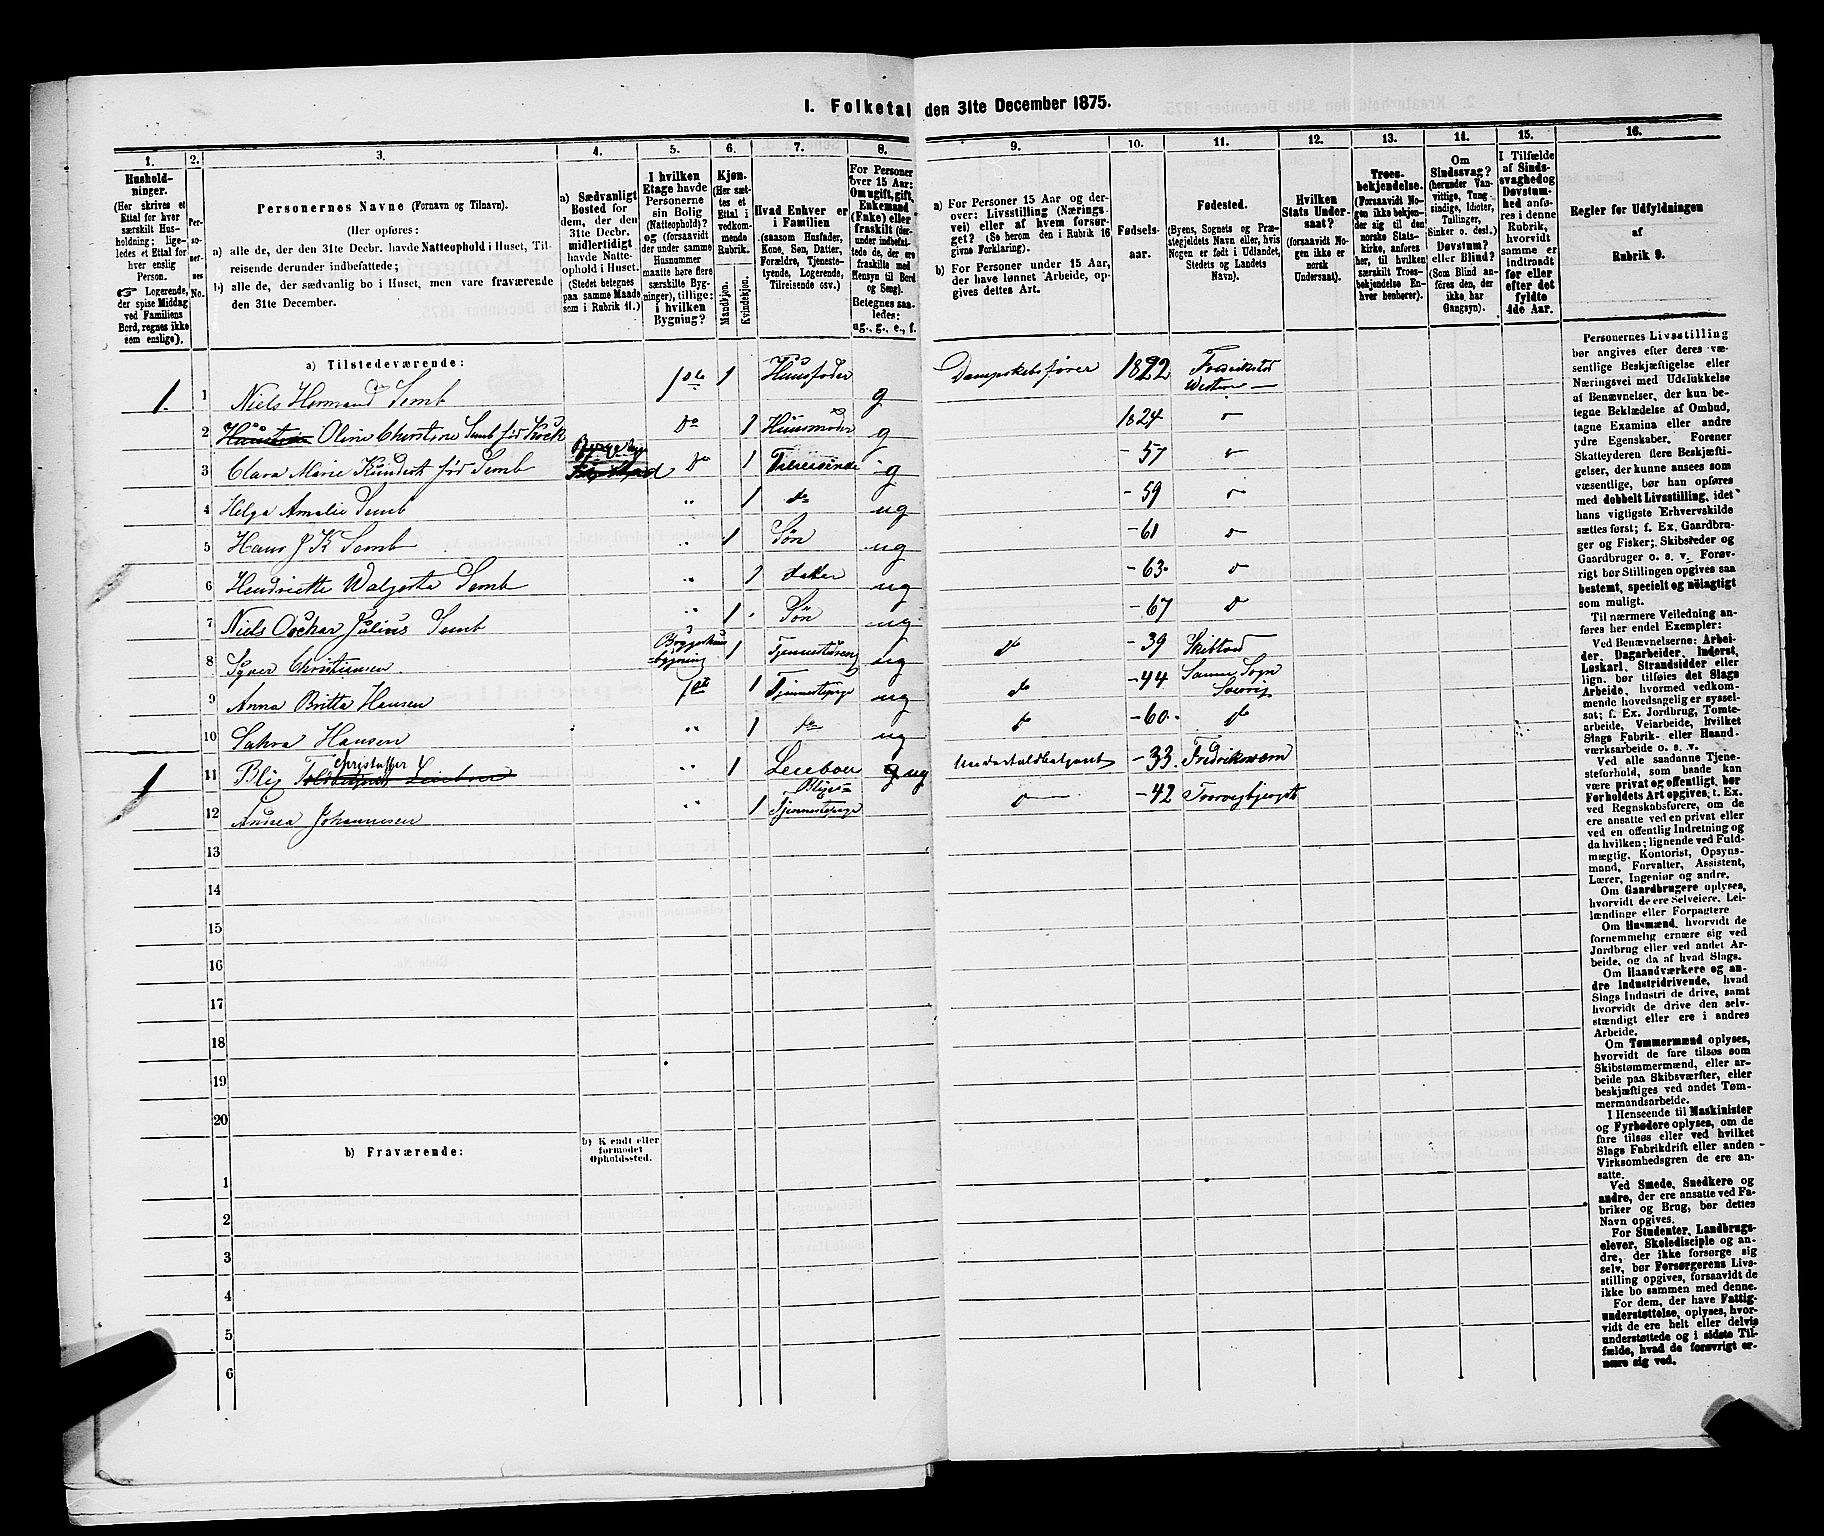 I. Folketal den 31te December 1875.
1. 2. 3. 4. 5. 6. 7. 8. 9. 10. 11. 12. 13. 14. 15. 16.
Husholdninger.
(Her skrives et Ettal for hver særskilt Husholdning; ligeledes et Ettal for hver enslig Person.
☞ Logerende, der spise Middag ved Familiens Bord, regnes ikke som enslige).
Personernes No.
Personernes Navne (Fornavn og Tilnavn).
(Her opføres:
a) alle de, der den 31te Decbr. havde Natteophold i Huset, Tilreisende derunder indbefattede;
b) alle de, der sædvanlig bo i Huset, men vare fraværende den 31te December.
a) Sædvanligt Bosted for dem, der den 31te Decbr. midlertidigt havde Natteophold i Huset. (Stedet betegnes paa samme Maade som i Rubrik 11.)
I hvilken Etage havde Personerne sin Bolig (Natteophold)? og (forsaavidt der under samme Husnummer maatte høre flere særskilte Bygninger), tillige: i hvilken Bygning?
Kjøn. (Her sættes et Ettal i vedkommende Rubrik.
Mandkjøn.
Kvindekjøn.
Hvad Enhver er i Familien
(saasom Husfader, Kone, Søn, Datter, Forældre, Tjenestetyende, Logerende, Tilreisende osv.)
For Personer over 15 Aar: Om ugift, gift, Enkemand (Enke) eller fraskilt (derunder indbefattede de, der ere fraskilte med Hensyn til Bord og Seng).
Betegnes saaledes: ug., g., e., f.
a) For Personer 15 Aar og derover: Livsstilling (Næringsvei) eller af hvem forsørget? (Se herom den i Rubrik 16 givne Forklaring).
b) For Personer under 15 Aar, der have lønnet Arbeide, opgives dettes Art.
Fødselsaar.
Fødested.
(Byens, Sognets og Præstegjeldets Navn eller, hvis Nogen er født i Udlandet, Stedets og Landets Navn).
Hvilken Stats Undersaat?
(forsaavidt Nogen ikke er norsk Undersaat).
Troesbekjendelse.
(Forsaavidt Nogen ikke bekjender sig til den norske Statskirke, anføres her, til hvilken særskilt Troesbekjendelse Enhver henhører).
Om Sindssvag? (herunder Vanvittige, Tungsindige, Idioter, Tullinger, Sinker o. desl.) Døvstum? eller Blind? (Som Blind anføres den, der ikke har Gangsyn).
I Tilfælde af Sindssvaghed og Døvstumhed anføres i denne Rubrik, hvorvidt samme er indtraadt før eller efter det fyldte 4de Aar.
Regler for Udfyldningen
af
Rubrik 9.
a) Tilstedeværende:
1. 1 Niels Hermand Semb 1ste 1 Huusfader g Dampskibsfører 1822 Fredrikstad
2 Oline Christine Semb fød Kock Do 1 Huusmoder g 1824
3 Clara Marie fød Semb Do 1 Tilreisende g -57
4 Helga Amalie Semb " 1 do ug -59
5 Hans J K Semb " 1 Søn ug -61
6 Henriette Semb " 1 ug -63
7 Niels Oskar Julius Semb " 1 Søn ug -67
8 Christiensen Bryggerhuus bygning 1 ug -39 Skibtvedt
9 Anna Britta Hansen 1ste 1 Tjennestepige ug -44
10 Hansen " 1 do ug -60
1 11 Blix Christoffer " 1 Leieboer ug Undertoldbetjent -33 Fredriksværn
12 Johannesen " 1 Tjennestepige -42
13
14
15
16
17
18
19
20
b) Fraværende:
b) Kjendt eller formodet Opholdssted.
1
2
3
4
5
6
Personernes Livsstilling bør angives efter deres væsentlige Beskjæftigelse eller Næringsvei med Udelukkelse af Benævnelser, der kun betegne Beklædelse af Ombud, tagne Examina eller andre ydre Egenskaber. Forener Skatteyderen flere Beskjæftigelser, der kunne ansees som væsentlige, bør han opføres med dobbelt Livsstilling, idet hans vigtigste Erhvervskilde sættes først; f. Ex. Gaardbruger og Fisker; Skibsreder og Gaardbruger o. s. v. Forøvrigt bør Stillingen opgives saa bestemt, specielt og nøiagtigt som muligt.
Til nærmere Veiledning anføres her endel Exempler:
Ved Benævnelserne: Arbeider, Dagarbeider, Inderst, Løskarl, Strandsidder eller lign. bør tilføies det Slags Arbeide, hvormed vedkommende hovedsagelig er sysselsat; f. Ex. Jordbrug, Tomtearbeide, Veiarbeide, hvilket Slags Fabrik- eller Haandværksarbeide o. s. v.
Ved alle saadanne Tjenesteforhold, som baade kan være privat og offentligt, bør Forholdets Art opgives; t. Ex. ved Regnskabsførere, om de ere ansatte ved en privat eller ved en offentlig Indretning og da hvilken; lignende ved Fuldmægtig, Kontorist, Opsynsmand, Forvalter, Assistent, Lærer, Ingeniør og andre.
Om Gaardbrugere oplyses, hvorvidt de ere Selveiere, Leilændinge eller Forpagtere
Om Husmænd, hvorvidt de fornemmelig ernære sig ved Jordbrug eller ved andet Arbeide, og da af hvad Slags.
Om Haandværkere og andre Industridrivende, hvad Slags Industri de drive, samt hvorvidt de drive den selvstændigt eller ere i andres Arbeide.
Om Tømmermænd oplyses, hvorvidt de fare tilsøs som Skibstømmermænd, eller arbeide paa Skibsværfter, eller beskjæftiges ved andet Tømmermandsarbeide.
I Henseende til Maskinister og Fyrbødere oplyses, om de fare tilsøs eller ved hvilket Slags Fabrikdrift eller anden Virksomhedsgren de ere ansatte.
Ved Smede, Snedkere og andre, der ere ansatte ved Fabriker og Brug, bør dettes Navn opgives.
For Studenter, Landbrugselever, Skoledisciple og andre, der ikke forsørge sig selv, bør Forsørgerens Livsstilling opgives, forsaavidt de ikke bo sammen med denne.
For dem, der have Fattigunderstøttelse, oplyses, hvorvidt de ere helt eller delvis understøttede og i sidste Tilfælde, hvad de forøvrigt ernære sig ved.